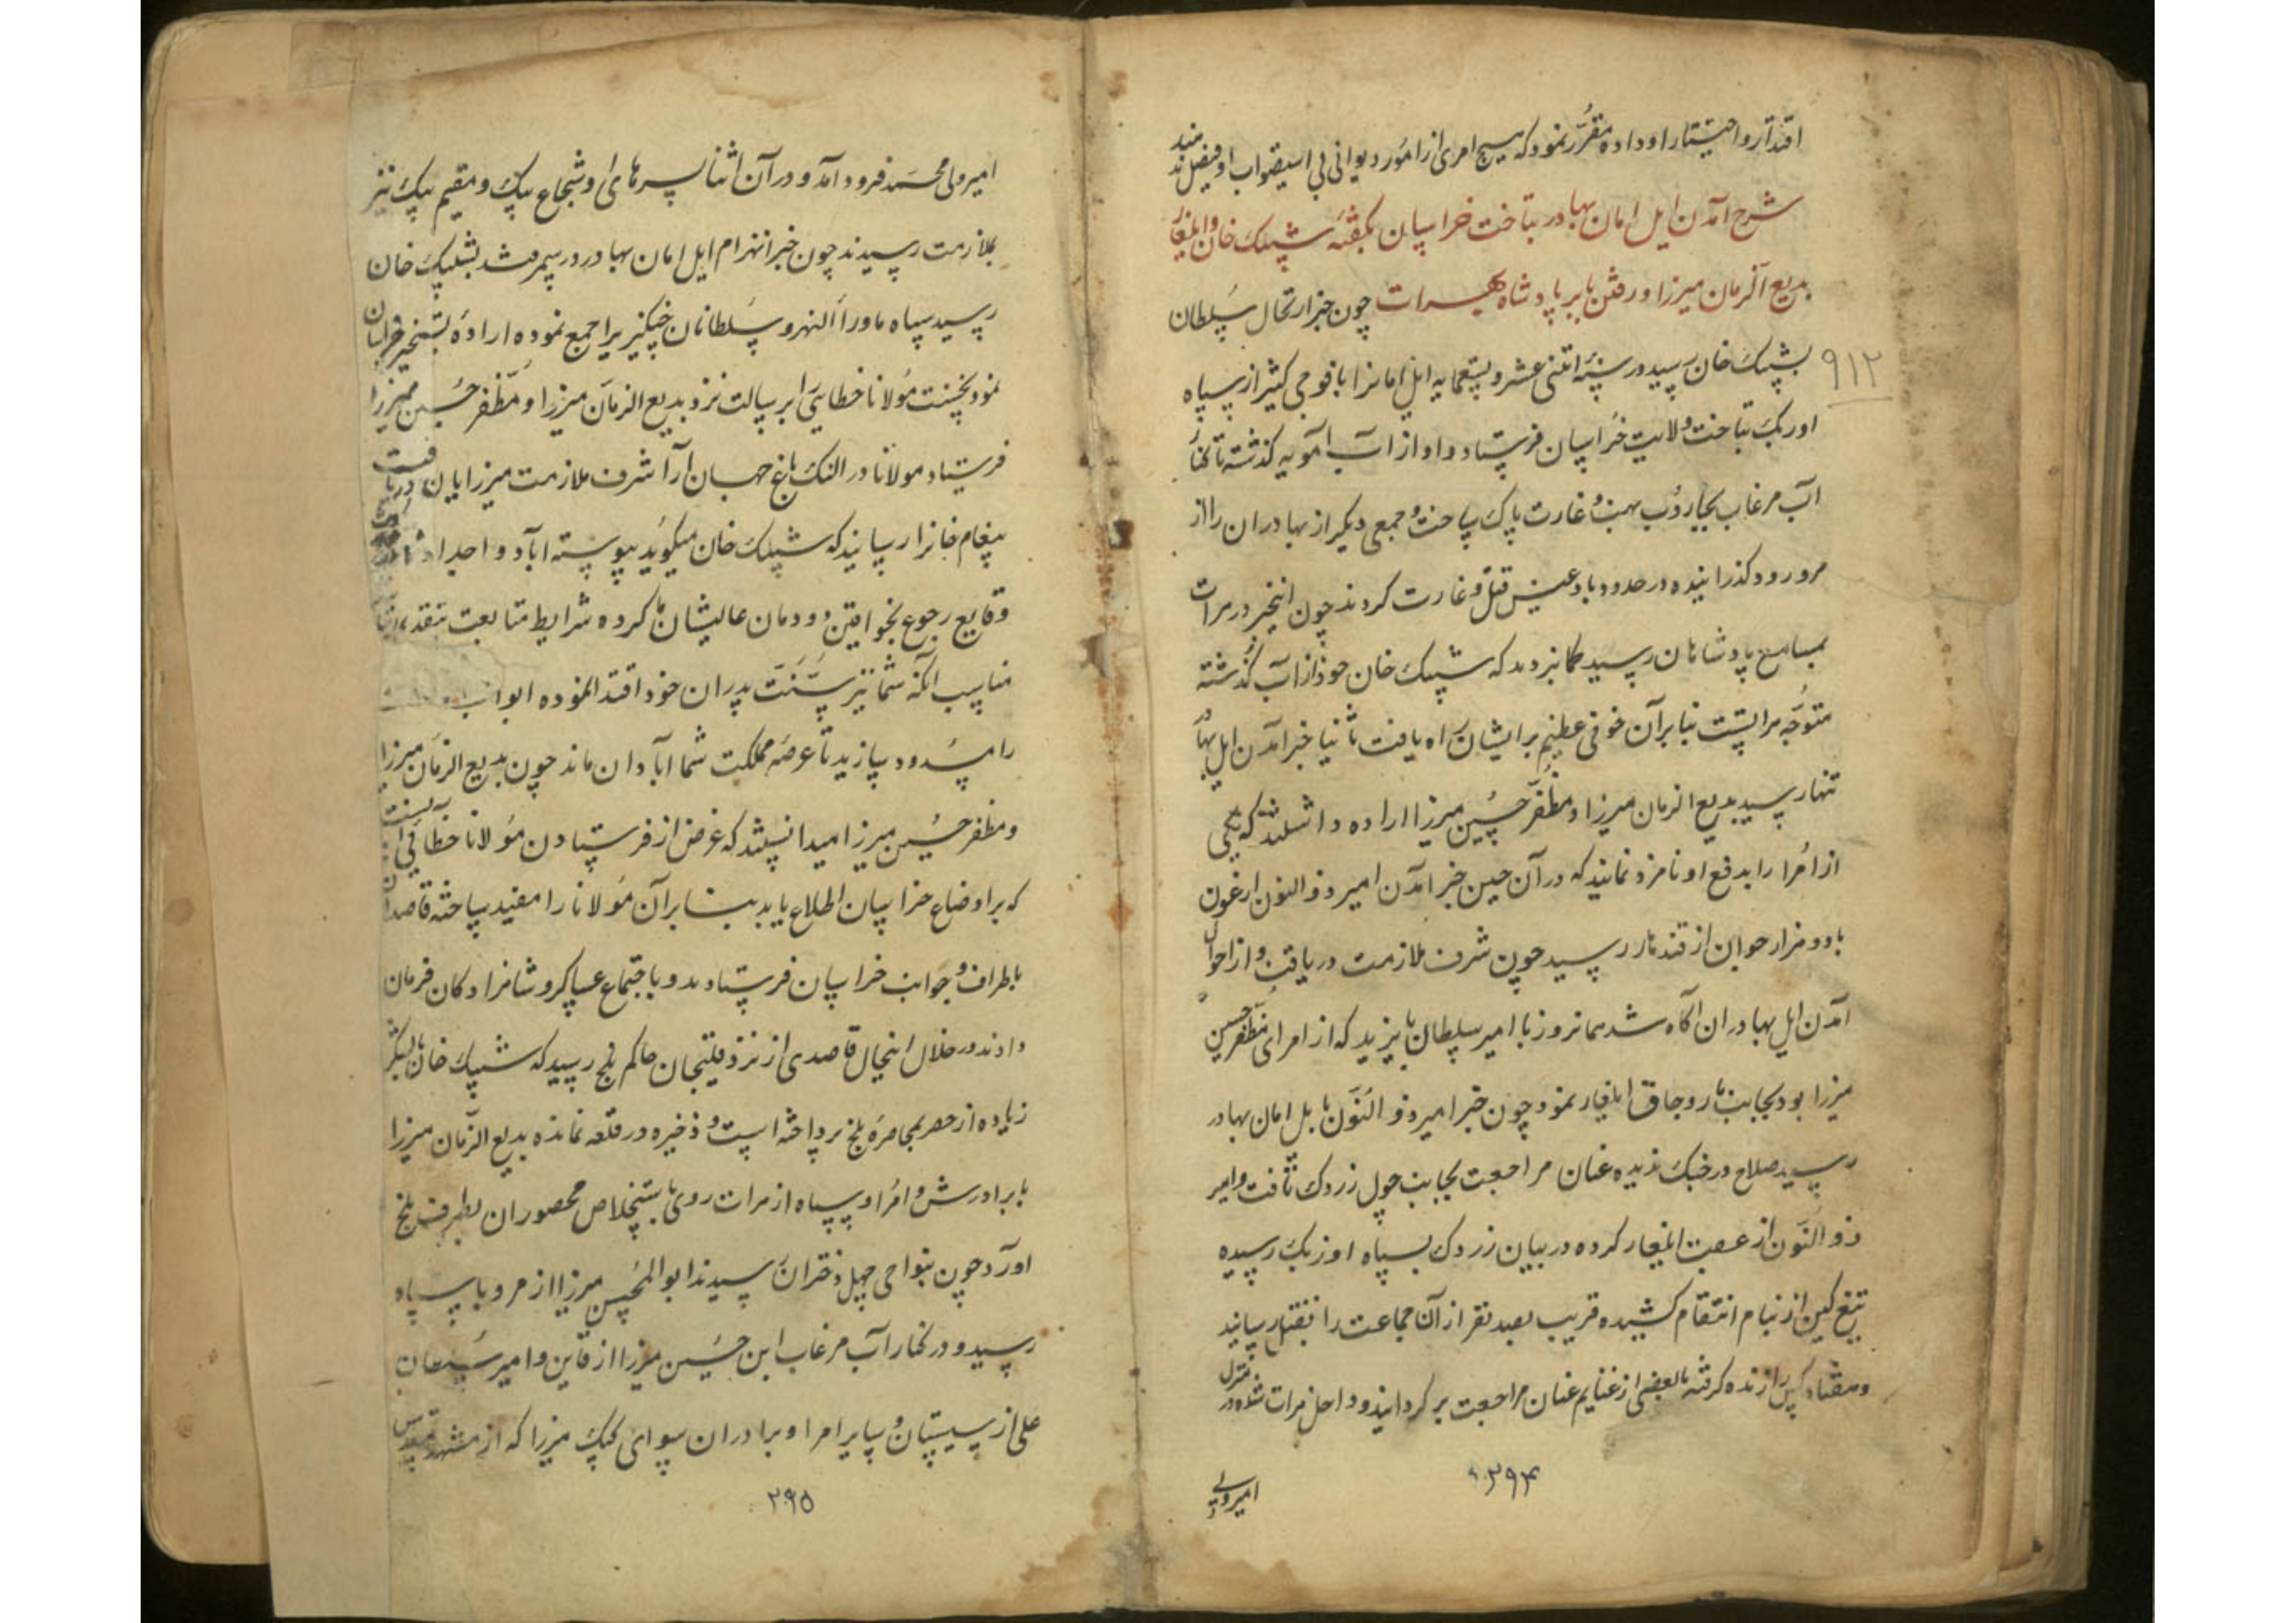 اقتدار و اختیار را او داده مقرّر نمود که هیچ امری از امور دیوانی بی استصواب او فیصل ندهند
شرح آمدن ایل امان بهادر بتاخت خراسان بگفتهٔ شیبک خان و ایلغار
بدیع الزمان میرزا و رفتن بابر پادشاه بهرات چون خبر ارتحال سلطان
۹۱۲
بشیبک خان رسید در سنهٔ اثنی عشر و تسعمایه ایل امانرا با فوجی کثیر از سپاه
اوزبک بتاخت ولایت خراسان فرستاد و او از آب آمویه کذشته تا کنار
آب مرغاب بجاروب نهب و غارت پاک ساخت و جمعی دیکر از بهادران را از
مرو رود کذرانیده در حدود بادغیس قتل و غارت کردند چون اینخبر در هرات
بمسامع پادشاهان رسید کمان بردند که شیبک خان خود از آب کذشته
متوجّه هراتست بنابرآن خوفی عظیم بر ایشان راه یافت ثانیا خبر آمدن ایل بهادر
تنها رسید بدیع الزمان میرزا و مظفر حسین میرزا اراده داشتند که یکی
از امرا را بدفع او نامزد نمایند که در آن حین خبر آمدن امیر ذوالنون ارغون
با دو هزار جوان از قندهار رسید چون شرف ملازمت دریافت و از احوال
آمدن ایل بهادران آکاه شد همانروز با امیر سلطان بایزید که از امرای مظفر حسین
میرزا بود بجانب ماروچاق ایلغار نمود چون خبر امیر ذوالنون بایل امان بهادر
رسید صلاح در جنک ندیده عنان مراجعت بجانب چول زردک تافت و امیر
ذوالنون از عقب ایلغار کرده در بیان زردک بسپاه اوزبک رسیده
تیغ کین از نیام انتقام کشیده قریب بصد نفر از آن جماعت را بقتل رسانید
و هفتاد کس را زنده کرفته با بعضی از غنایم عنان مراجعت بر کردانید و داخل هرات شده در منزل
۲۹۴
امیر ولی
امیر ولی محمد فرود آمد و در آن اثنا پسرهای او شجاع بیک و مقیم بیک نیز
بملازمت رسیدند چون خبر انهزام ایل امان بهادر در سمرقند بشیبک خان
رسید سپاه ماوراءالنهر و سلطانان چنکیزی را جمع نموده ارادهٔ تسخیر خراسان
نمود نخست مولانا خطایی را برسالت نزد بدیع الزمان میرزا و مظفر حسین میرزا
فرستاد مولانا در النک باغ جهان آرا شرف ملازمت میرزایان دریافت
پیغام خانرا رسانید که شیبک خان میکوید پیوسته آبا و اجداد شما در
وقایع رجوع بخواقین دودمان عالیشان ما کرده شرایط متابعت بتقدیم
مناسب آنکه شما نیز سنت پدران خود اقتدا نموده ابواب
را مسدود سازید تا عرصه مملکت شما آبادان ماند چون بدیع الزمان میرزا
و مظفر حسین میرزا میدانستند که غرض از فرستادن مولانا خطائی آنست
که بر اوضاع خراسان اطلاع یابد بنابرآن مولانا را مقید ساخته قاصدان
باطراف و جوانب خراسان فرستادند و باجتماع عساکر و شاهزادکان فرمان
دادند در خلال اینحال قاصدی از نزد قلنجان حاکم بلخ رسید که شیبک خان با لشکر
زیاده از حصر بمحاصرهٔ بلخ پرداخته است و ذخیره در قلعه نمانده بدیع الزمان میرزا
با برادرش و امرا و سپاه از هرات روی باستخلاص محصوران بطرف بلخ
آورد چون بنواحی چهل دختران رسیدند ابوالمحسن میرزا از مرو با سپاه
رسید و در کنار آب مرغاب ابن حسین میرزا از قاین و امیر سلطان
علی از سیستان و سایر امرا و برادران سوای کپک میرزا که از مشهد مقدس
۲۹۵